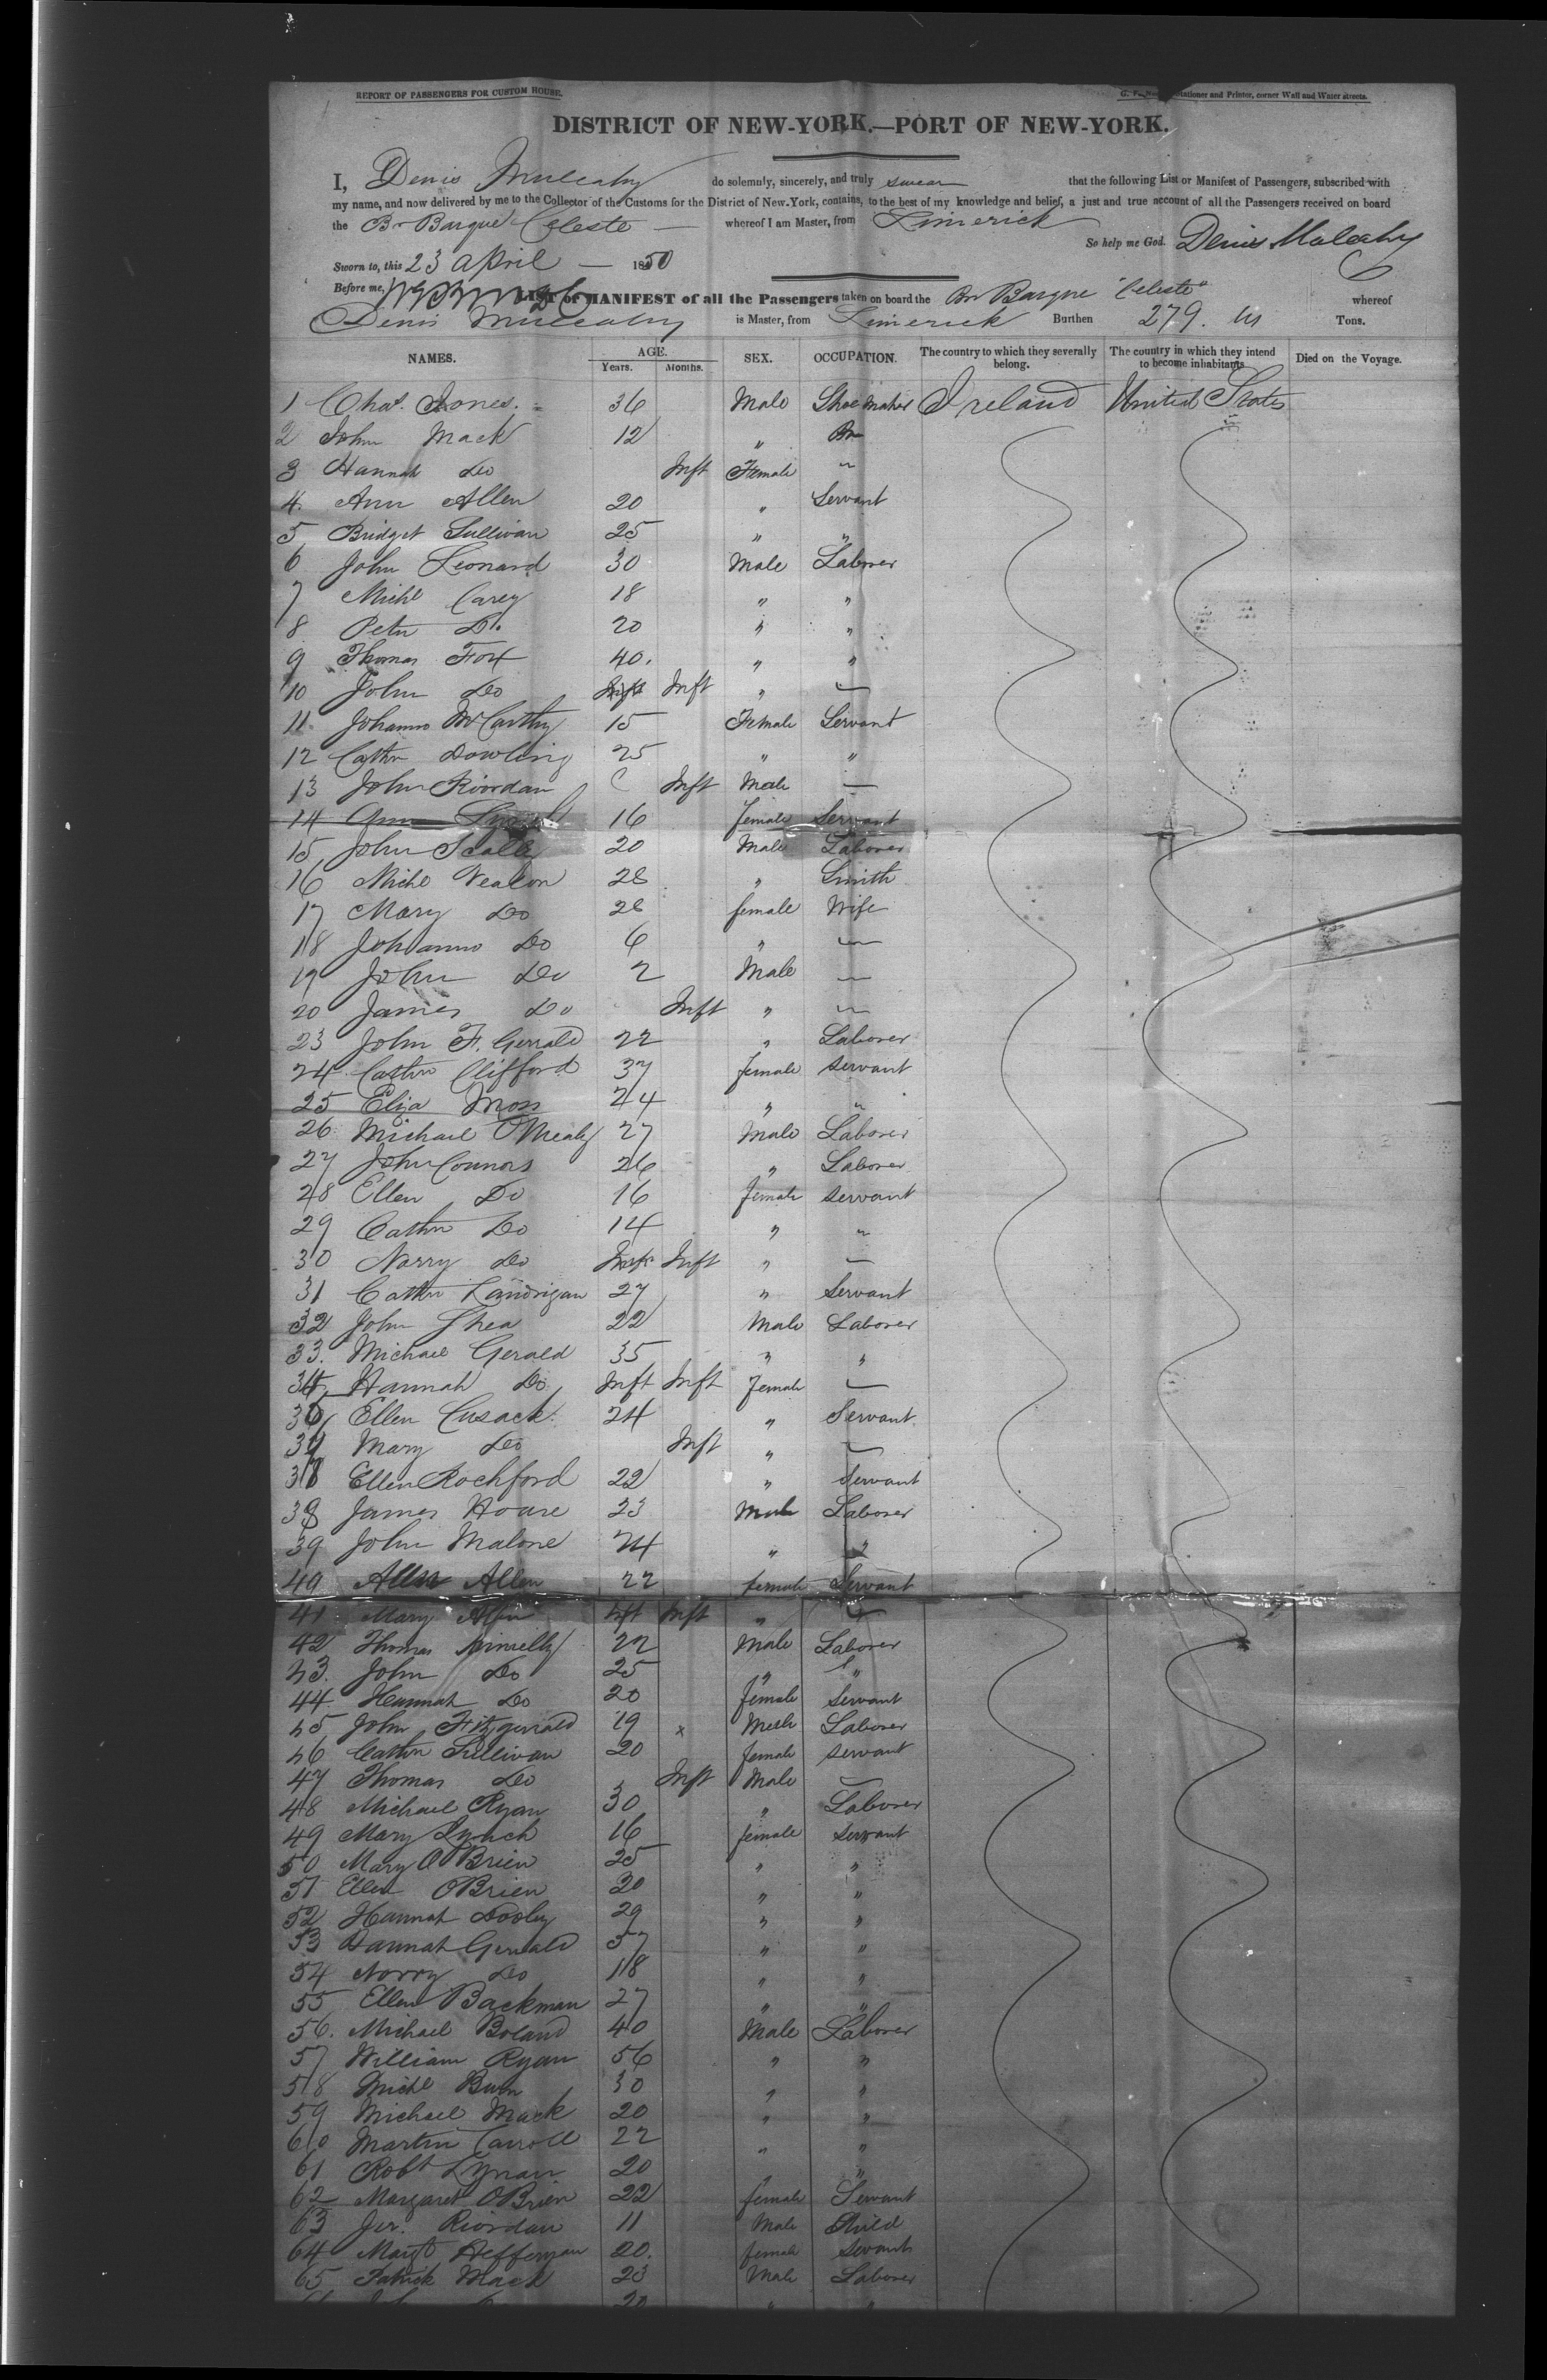 REPORT OF PASSENGERS FOR CUSTOM HOUSE.
Stationer and Printer, corner Wall and Water streets.
DISTRICT OF NEW-YORK.—PORT OF NEW-YORK.
I, Denis Mulcahy do solemnly, sincerely, and truly swear that the following List or Manifest of Passengers, subscribed with
my name, and now delivered by me to the Collector of the Customs for the District of New-York, contains, to the best of my knowledge and belief, a just and true account of all the Passengers received on board
the Br Barque Celeste — whereof I am Master, from Limerick
So help me God. Denis Mulcahy
Sworn to, this 23 April — 1850
Before me,
LIST or MANIFEST of all the Passengers taken on board the Br Barque "Celeste" whereof
Denis Mulcahy is Master, from Limerick Burthen 279. Tons.
NAMES. AGE. Years. Months. SEX. OCCUPATION. The country to which they severally belong. The country in which they intend to become inhabitants. Died on the Voyage.
1 Chas. Jones. 36 Male Shoemaker Ireland United States
2 John Mack 12 "
3 Hannah Do Inft Female "
4. Ann Allen 20 " Servant
5 Bridget Sullivan 25 " "
6 John Leonard 30 Male Laborer
7 Michl Carey 18 " "
8 Peter Do. 20 " "
9 Thomas Fox 40. " "
10 John Do Inft Inft " —
11. Johanna McCarthy 15 Female Servant
12 Cathn Dowling 25 " "
13 John Riordan Inft Male —
14 Ann 16 female Servant
15 John Scally 20 Male Laborer
16 Michl Nealon 28 " Smith
17 Mary Do 28 female Wife
18 Johanna Do 6 " —
19 John Do 2 Male —
20 James Do Inft " —
23 John F. Gerrald 22 " Laborer
24. Cathn Clifford 37 female Servant
25 Eliza Moss 24 " "
26 Michael O'Mealy 27 Male Laborer
27 John Connors 26 " Laborer
28 Ellen Do 16 female Servant
29 Cathn Do 14 " "
30 Norry Do Inft Inft " —
31 Cathn Landrigan 27 " Servant
32 John Shea 22 Male Laborer
33. Michael Gerald 35 " "
34 Hannah Do Inft Inft Female —
36 Ellen Cusack. 24 " Servant
37 Mary Do Inft " —
38 Ellen Rochford 22 " Servant
38 James Hoare 23 Male Laborer
39 John Malone 24 " "
40 Allen 22 female Servant
41 Mary Allen Inft Inft " —
42 Thomas Kinnelly 22 Male Laborer
43. John Do 25 " "
44. Hannah Do 20 female Servant
45 John Fitzgerrald 19 x Male Laborer
46 Cathn Sullivan 20 female servant
47 Thomas Do Inft Male —
48 Michael Ryan 30 " Laborer
49 Mary Lynch 16 female servant
50 Mary O'Brien 25 " "
51 Ellen OBrien 30 " "
52 Hannah Dooley 29 " "
53 Hannah Gerrald 57 " "
54 Norry Do 18 " "
55 Ellen Backman 27 " "
56. Michael Boland 40 Male Laborer
57 William Ryan 56 " "
58 Michl 30 " "
59 Michael Mack 20 " "
60 Martin Carroll 22 " "
61 Robt Lynan 20 " "
62 Margaret O'Brien 22 female Servant
63 Jer. Riordan 11 Male Child
64 Margt Heffernan 20. female Servant
65 Patrick Mack 23 Male Laborer
20 " "